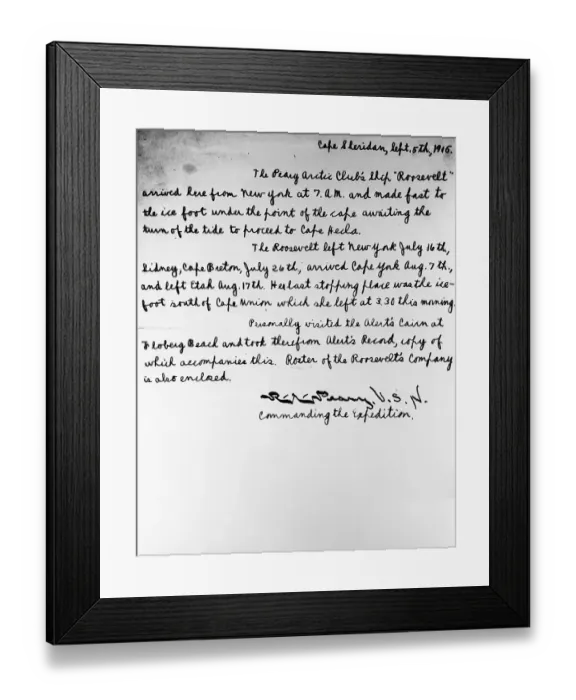 Cape Sheridan, Sept. 5th, 1905.
The Peary Arctic Club's Ship "Roosevelt"
arrived here from New York at 7. A.M. and made fast to
the ice foot under the point of the cape awaiting the
turn of the tide to proceed to Cape Hecla.
The Roosevelt left New York July 16th,
Sidney, Cape Breton, July 26th, arrived Cape York Aug. 7th,
and left Etah Aug. 17th. Her last stopping place was the ice-
foot south of Cape Union which she left at 3.30 this morning.
Personally visited the Alert's Cairn at
Floberg Beach and took therefrom Alert's Record, copy of
which accompanies this. Roster of the Roosevelt's Company
is also enclosed.
R.E. Peary, U.S.N.
Commanding the Expedition.